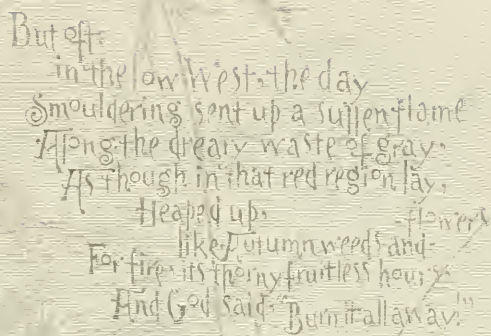 But oft,
in the low West, the day
Smouldering sent up a sullen flame
Along the dreary waste of gray,
As though in that red region lay,
Heaped up,
like Autumn weeds and flowers
For fire, its thorny fruitless hours,
And God said, "Burn it all away!"